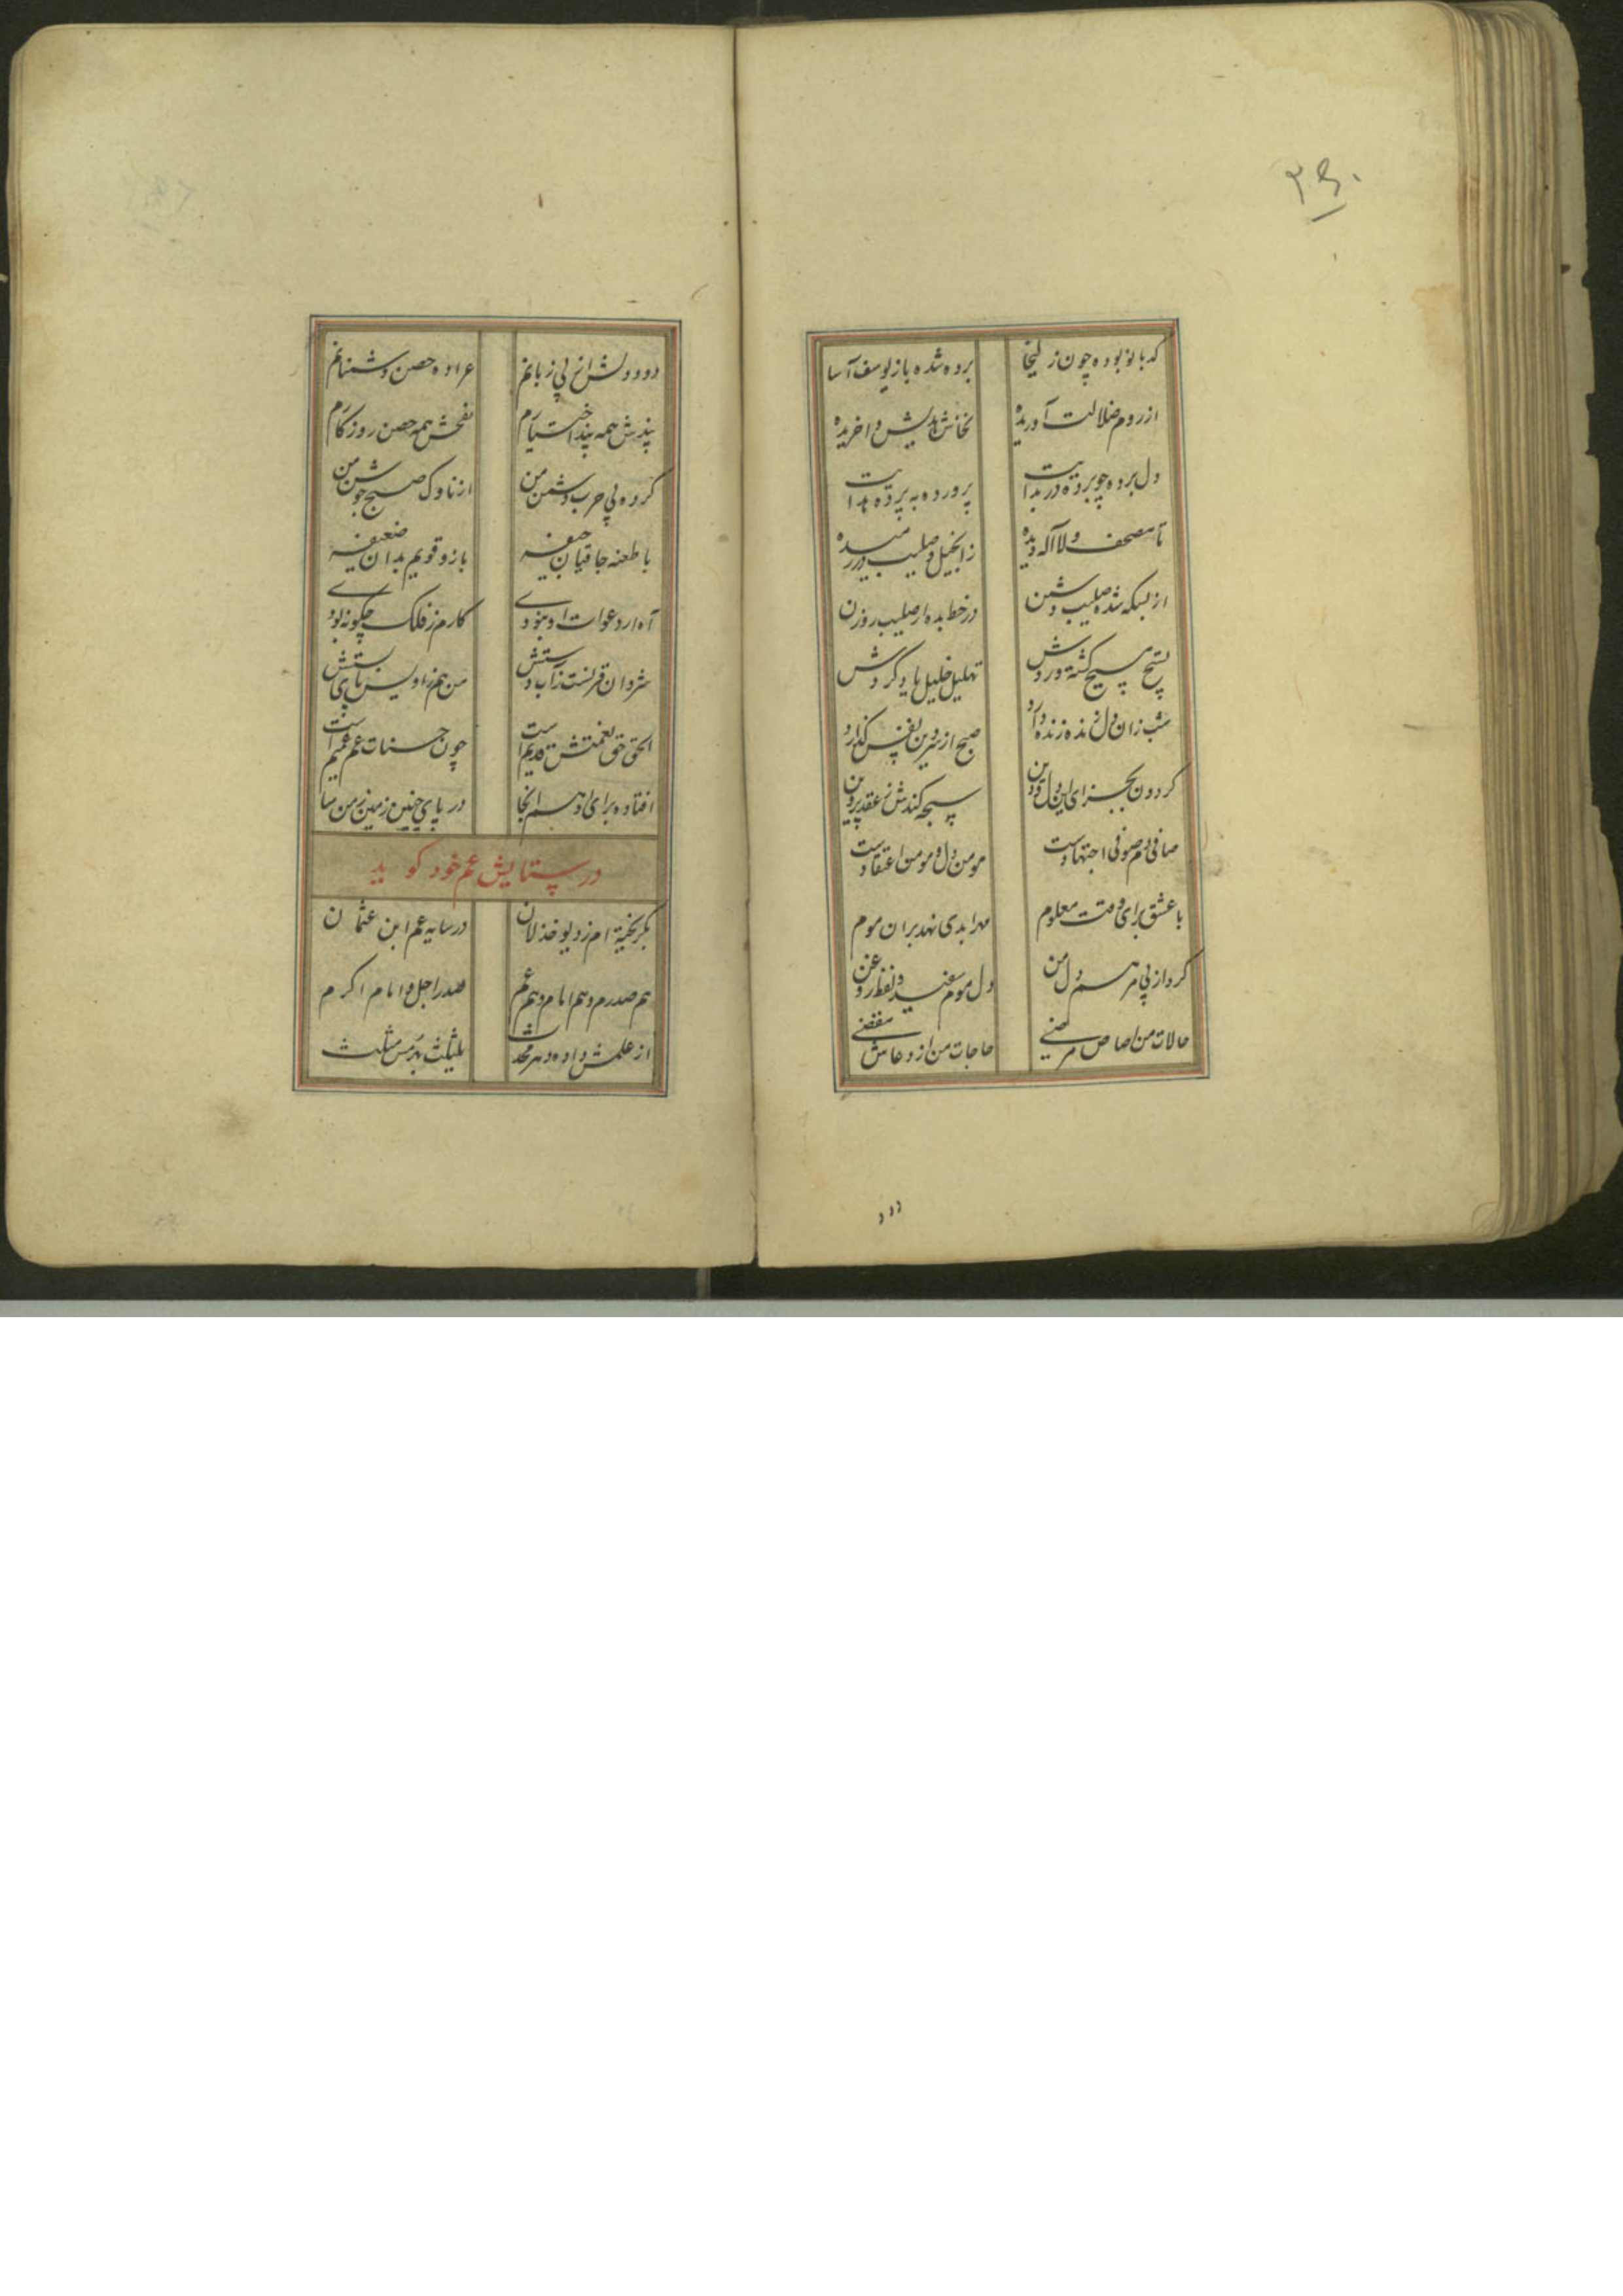 کدبانو بوده چون زلیخا
برده شده باز یوسف آسا
از روم ضلالت آوریده
نخاس هدیش واخریده
دل برده چو پرده در بدایت
پرورده به پرده هدایت
تا مصحف و لا اله دیده
ز انجیل و صلیب در رمیده
از بسکه شده صلیب دشمن
در خط بده از صلیب روزن
تسبیح مسیح گشته وردش
تهلیل خلیل یاد کردش
شب زان دل زنده زنده دارد
صبح از سر دین نفس گذارد
گردون بجزای این دل و دین
سبحه کندش ز عقد پروین
صافی دم صوفی اجتهادست
مومن دل و مومن اعتقادست
با عشق برای وقت معلوم
مهر ابدی نهد بران موم
کرد از پی مرهم دل من
دل موم سفید و نفط روغن
حالات من از خاص مرضی
حاجات من از دعاش مقضی
دود دلش از پی زبانم
عراده حصن دشمنانم
پندش همه بند اختیارم
نفحش همه حصن روزگارم
کرده پی حرب دشمن من
از ناوک صبح جوشن من
با طعنه جافیان جیفه
بازو قویم بدان ضعیفه
آه ار دعوات او نبودی
کارم ز فلک چگونه بودی
شروان قرنست ز آب دستش
من هم ز اویس پای بستش
الحق حق نعمتش قدیم است
چون حسنات عم عمیم است
افتاده برای او هم انجا
در پای چنین زمین زمن سا
در ستایش عم خود کوید
بگریخته ام ز دیو خذلان
در سایه عم ابن عثمان
هم صدرم و هم امام و هم عم
صدر اجل و امام اکرم
از علمش داده دهر محدث
یلیثلث بهرمس مثلث